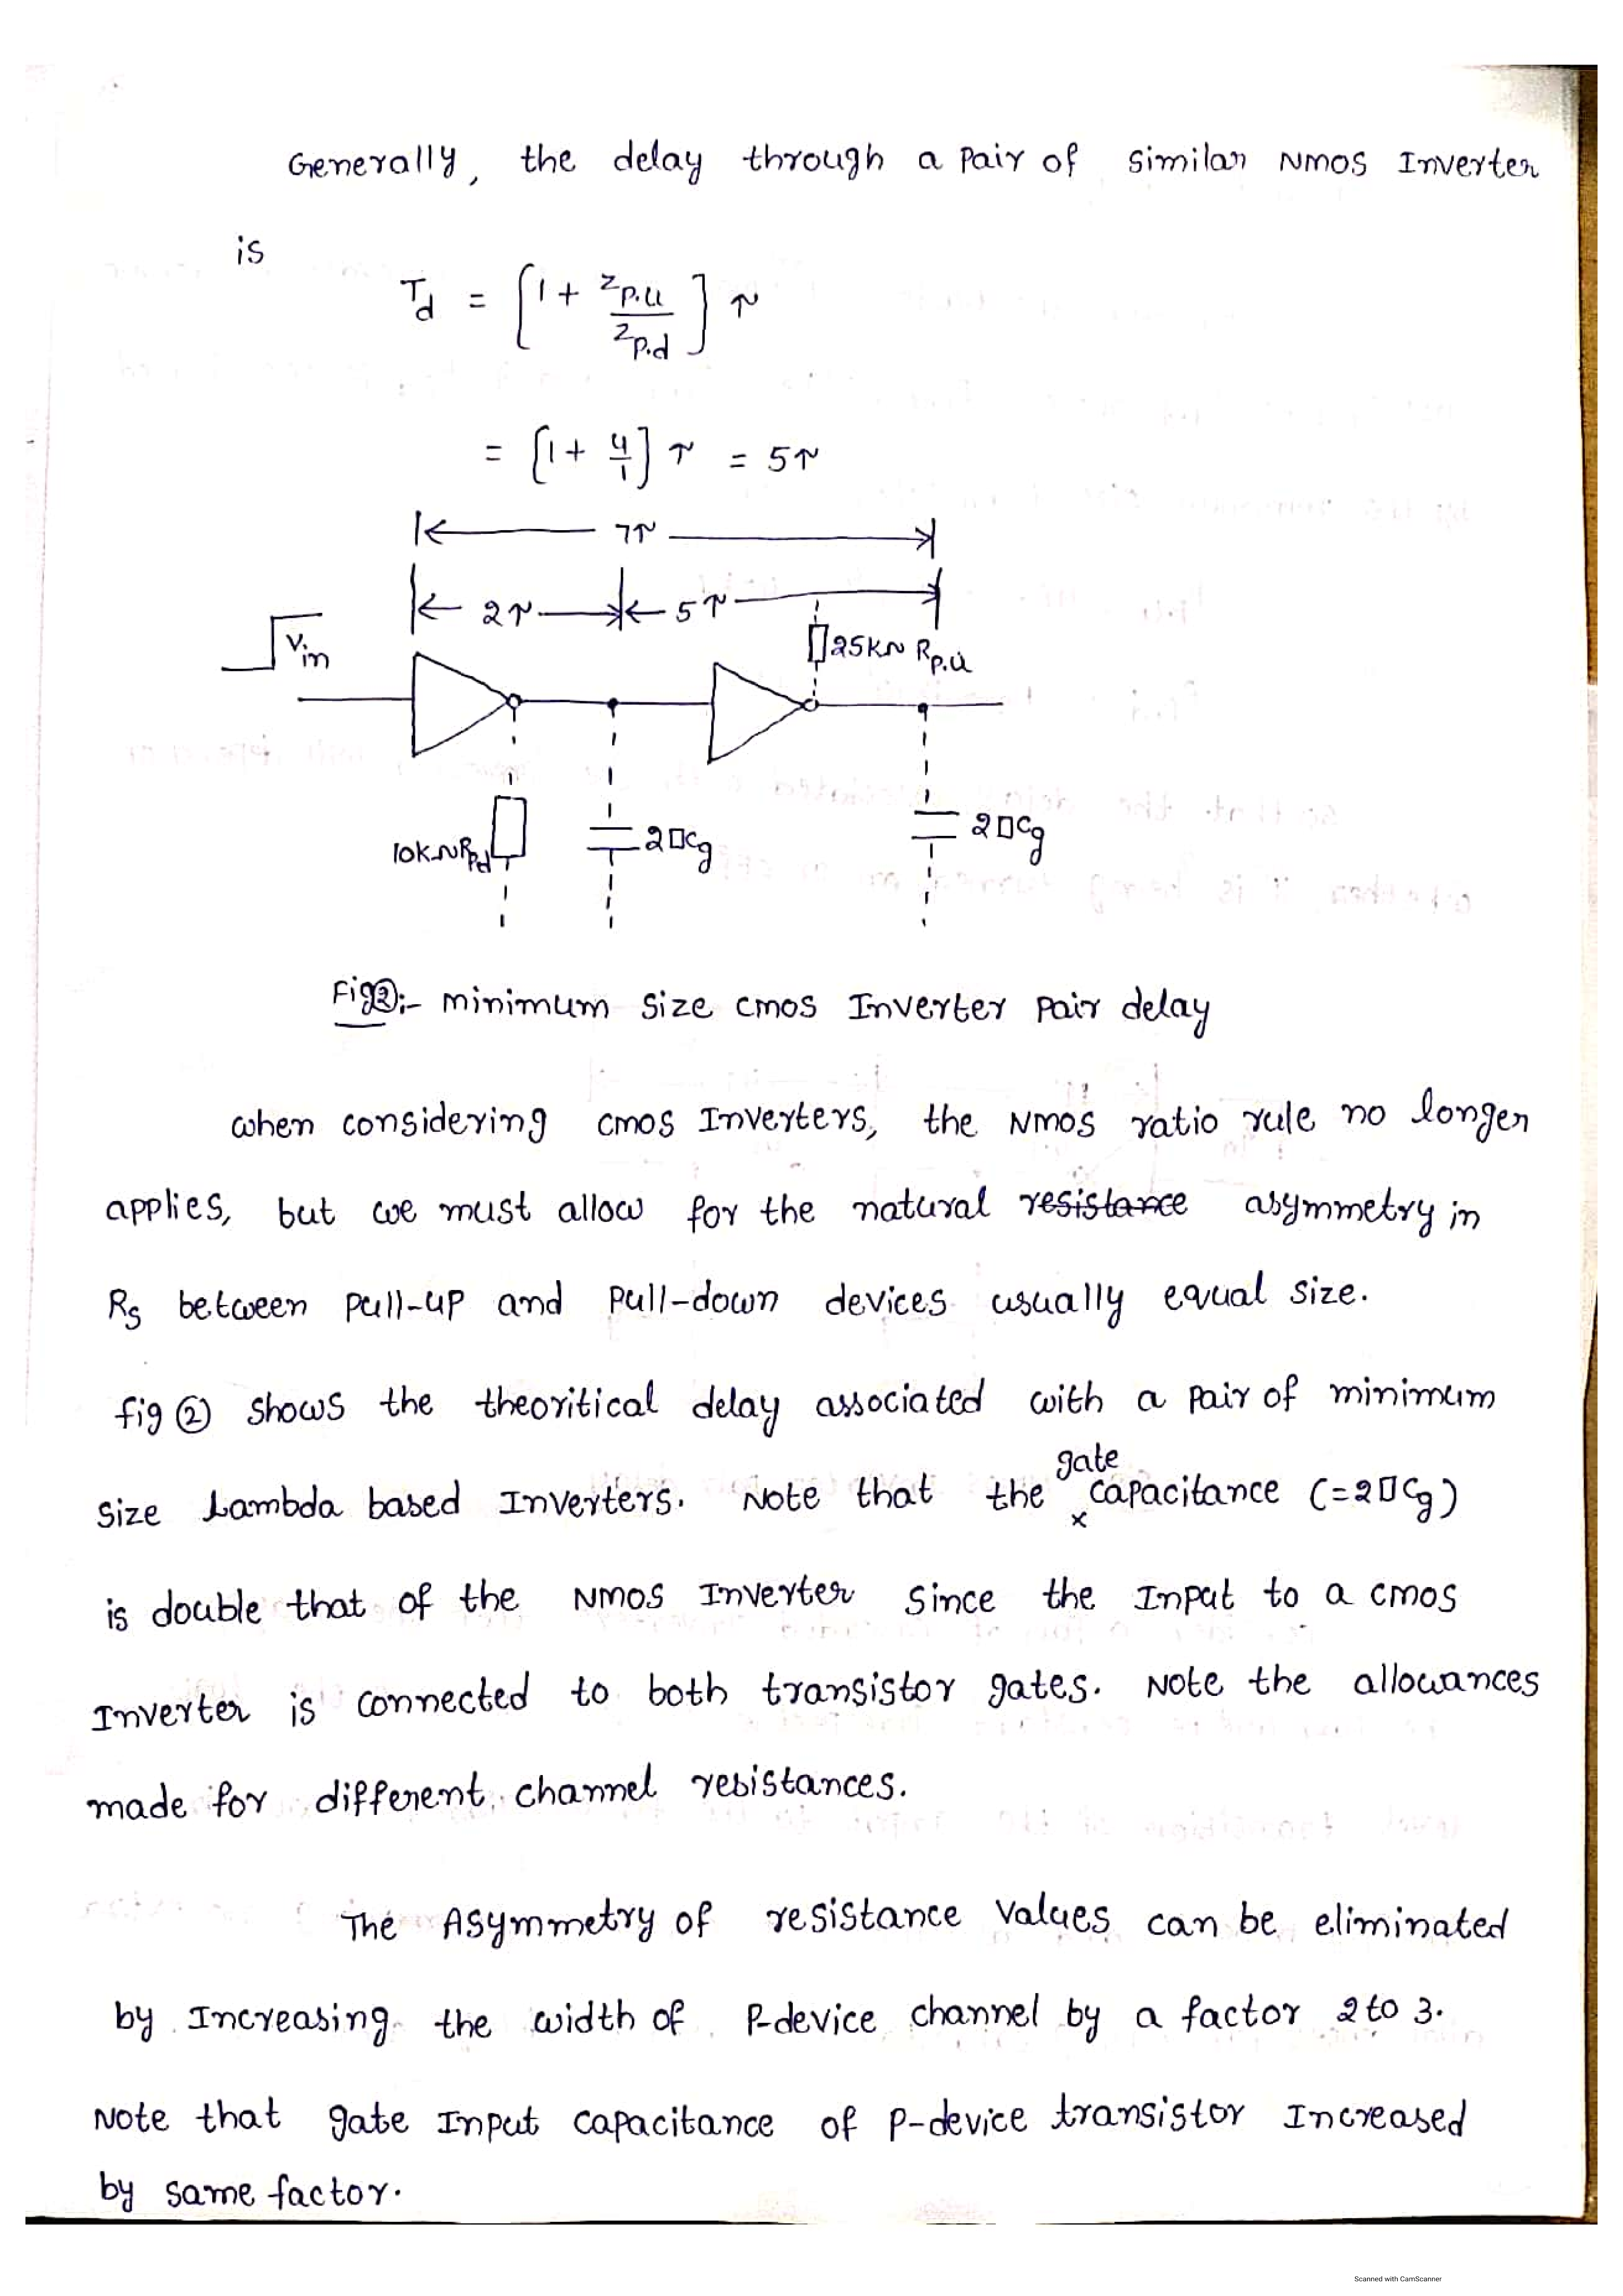 Generally, the delay through a pair of similar NMOS Inverter
is
Td = [1 + Zp.u / Zp.d] τ
= [1 + 4/1] τ = 5τ
7τ
2τ 5τ
Vin
25KΩ Rp.u
10KΩ Rpd
2□Cg
2□Cg
Fig②:- minimum size CMOS Inverter pair delay
when considering CMOS Inverters, the NMOS ratio rule no longer
applies, but we must allow for the natural resistance asymmetry in
Rs between pull-up and pull-down devices usually equal size.
fig ② shows the theoritical delay associated with a pair of minimum
size Lambda based Inverters. Note that the gate capacitance (=2□Cg)
is double that of the NMOS Inverter since the Input to a CMOS
Inverter is connected to both transistor gates. Note the allowances
made for different channel resistances.
The Asymmetry of resistance values can be eliminated
by Increasing the width of P-device channel by a factor 2 to 3.
Note that gate Input capacitance of p-device transistor Increased
by same factor.
Scanned with CamScanner